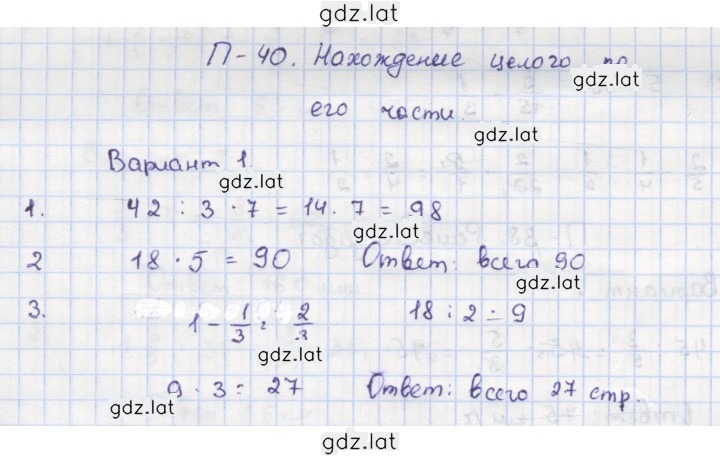 gdz.lat
П-40. Нахождение целого по
gdz.lat
его части.
gdz.lat
Вариант 1.
gdz.lat
1. 42 : 3 · 7 = 14 · 7 = 98
gdz.lat
2 18 · 5 = 90 Ответ: всего 90
gdz.lat
3. 1 - 1/3 = 2/3 18 : 2 = 9
gdz.lat
9 · 3 = 27 Ответ: всего 27 стр.
gdz.lat
gdz.lat